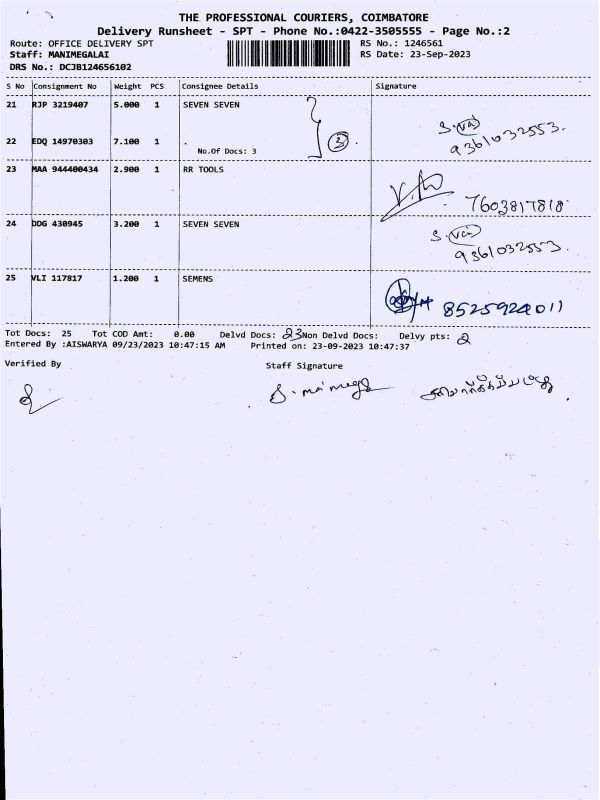 THE PROFESSIONAL COURIERS, COIMBATORE
Delivery Runsheet - SPT - Phone No.:0422-3505555 - Page No.:2
Route: OFFICE DELIVERY SPT RS No.: 1246561
Staff: MANIMEGALAI RS Date: 23-Sep-2023
DRS No.: DCJB124656102
S No Consignment No Weight PCS Consignee Details Signature
21 RJP 3219407 5.000 1 SEVEN SEVEN
22 EDQ 14970303 7.100 1 . 3 9361032553.
No.Of Docs: 3
23 MAA 944400434 2.900 1 RR TOOLS 7603817818
24 DDG 430945 3.200 1 SEVEN SEVEN 9361032553.
25 VLI 117817 1.200 1 SEMENS 8525920011
Tot Docs: 25 Tot COD Amt: 0.00 Delvd Docs: 23 Non Delvd Docs: Delvy pts: 2
Entered By :AISWARYA 09/23/2023 10:47:15 AM Printed on: 23-09-2023 10:47:37
Verified By Staff Signature